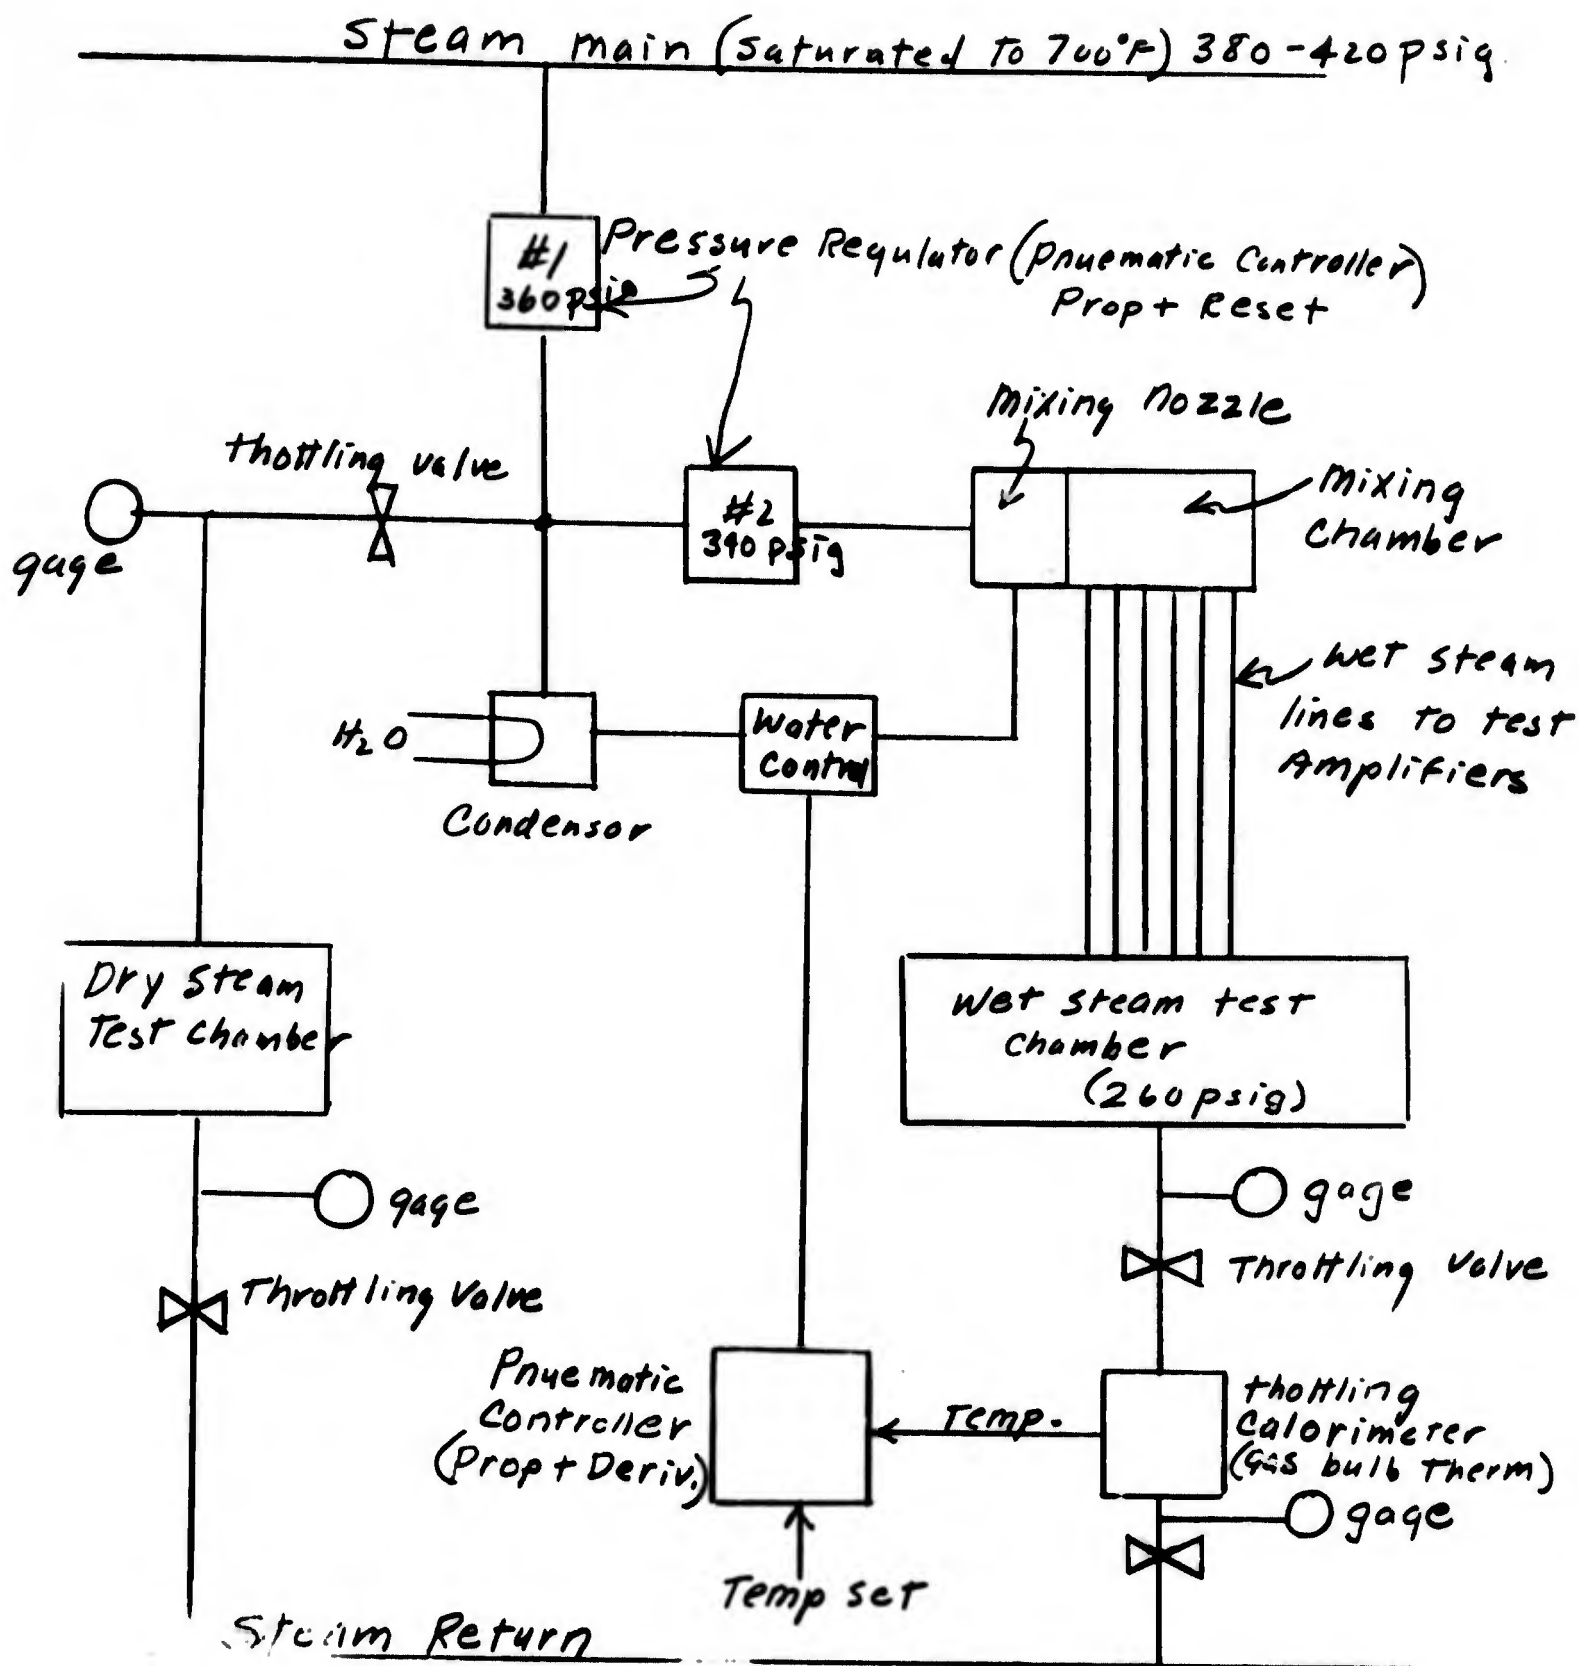 Steam main (Saturated To 700°F) 380-420 psig
#1
360 psig
Pressure Regulator (Pnuematic Controller)
Prop + Reset
Mixing Nozzle
thottling valve
gage
#2
340 psig
Mixing
Chamber
Wet Steam
lines to test
Amplifiers
H2O
Water
Control
Condensor
Dry Steam
Test Chamber
Wet Steam test
Chamber
(260 psig)
gage
gage
Throttling Valve
Throttling Valve
Pnuematic
Controller
(Prop + Deriv.)
Temp.
thottling
Calorimeter
(Gas bulb Therm)
gage
Temp set
Steam Return